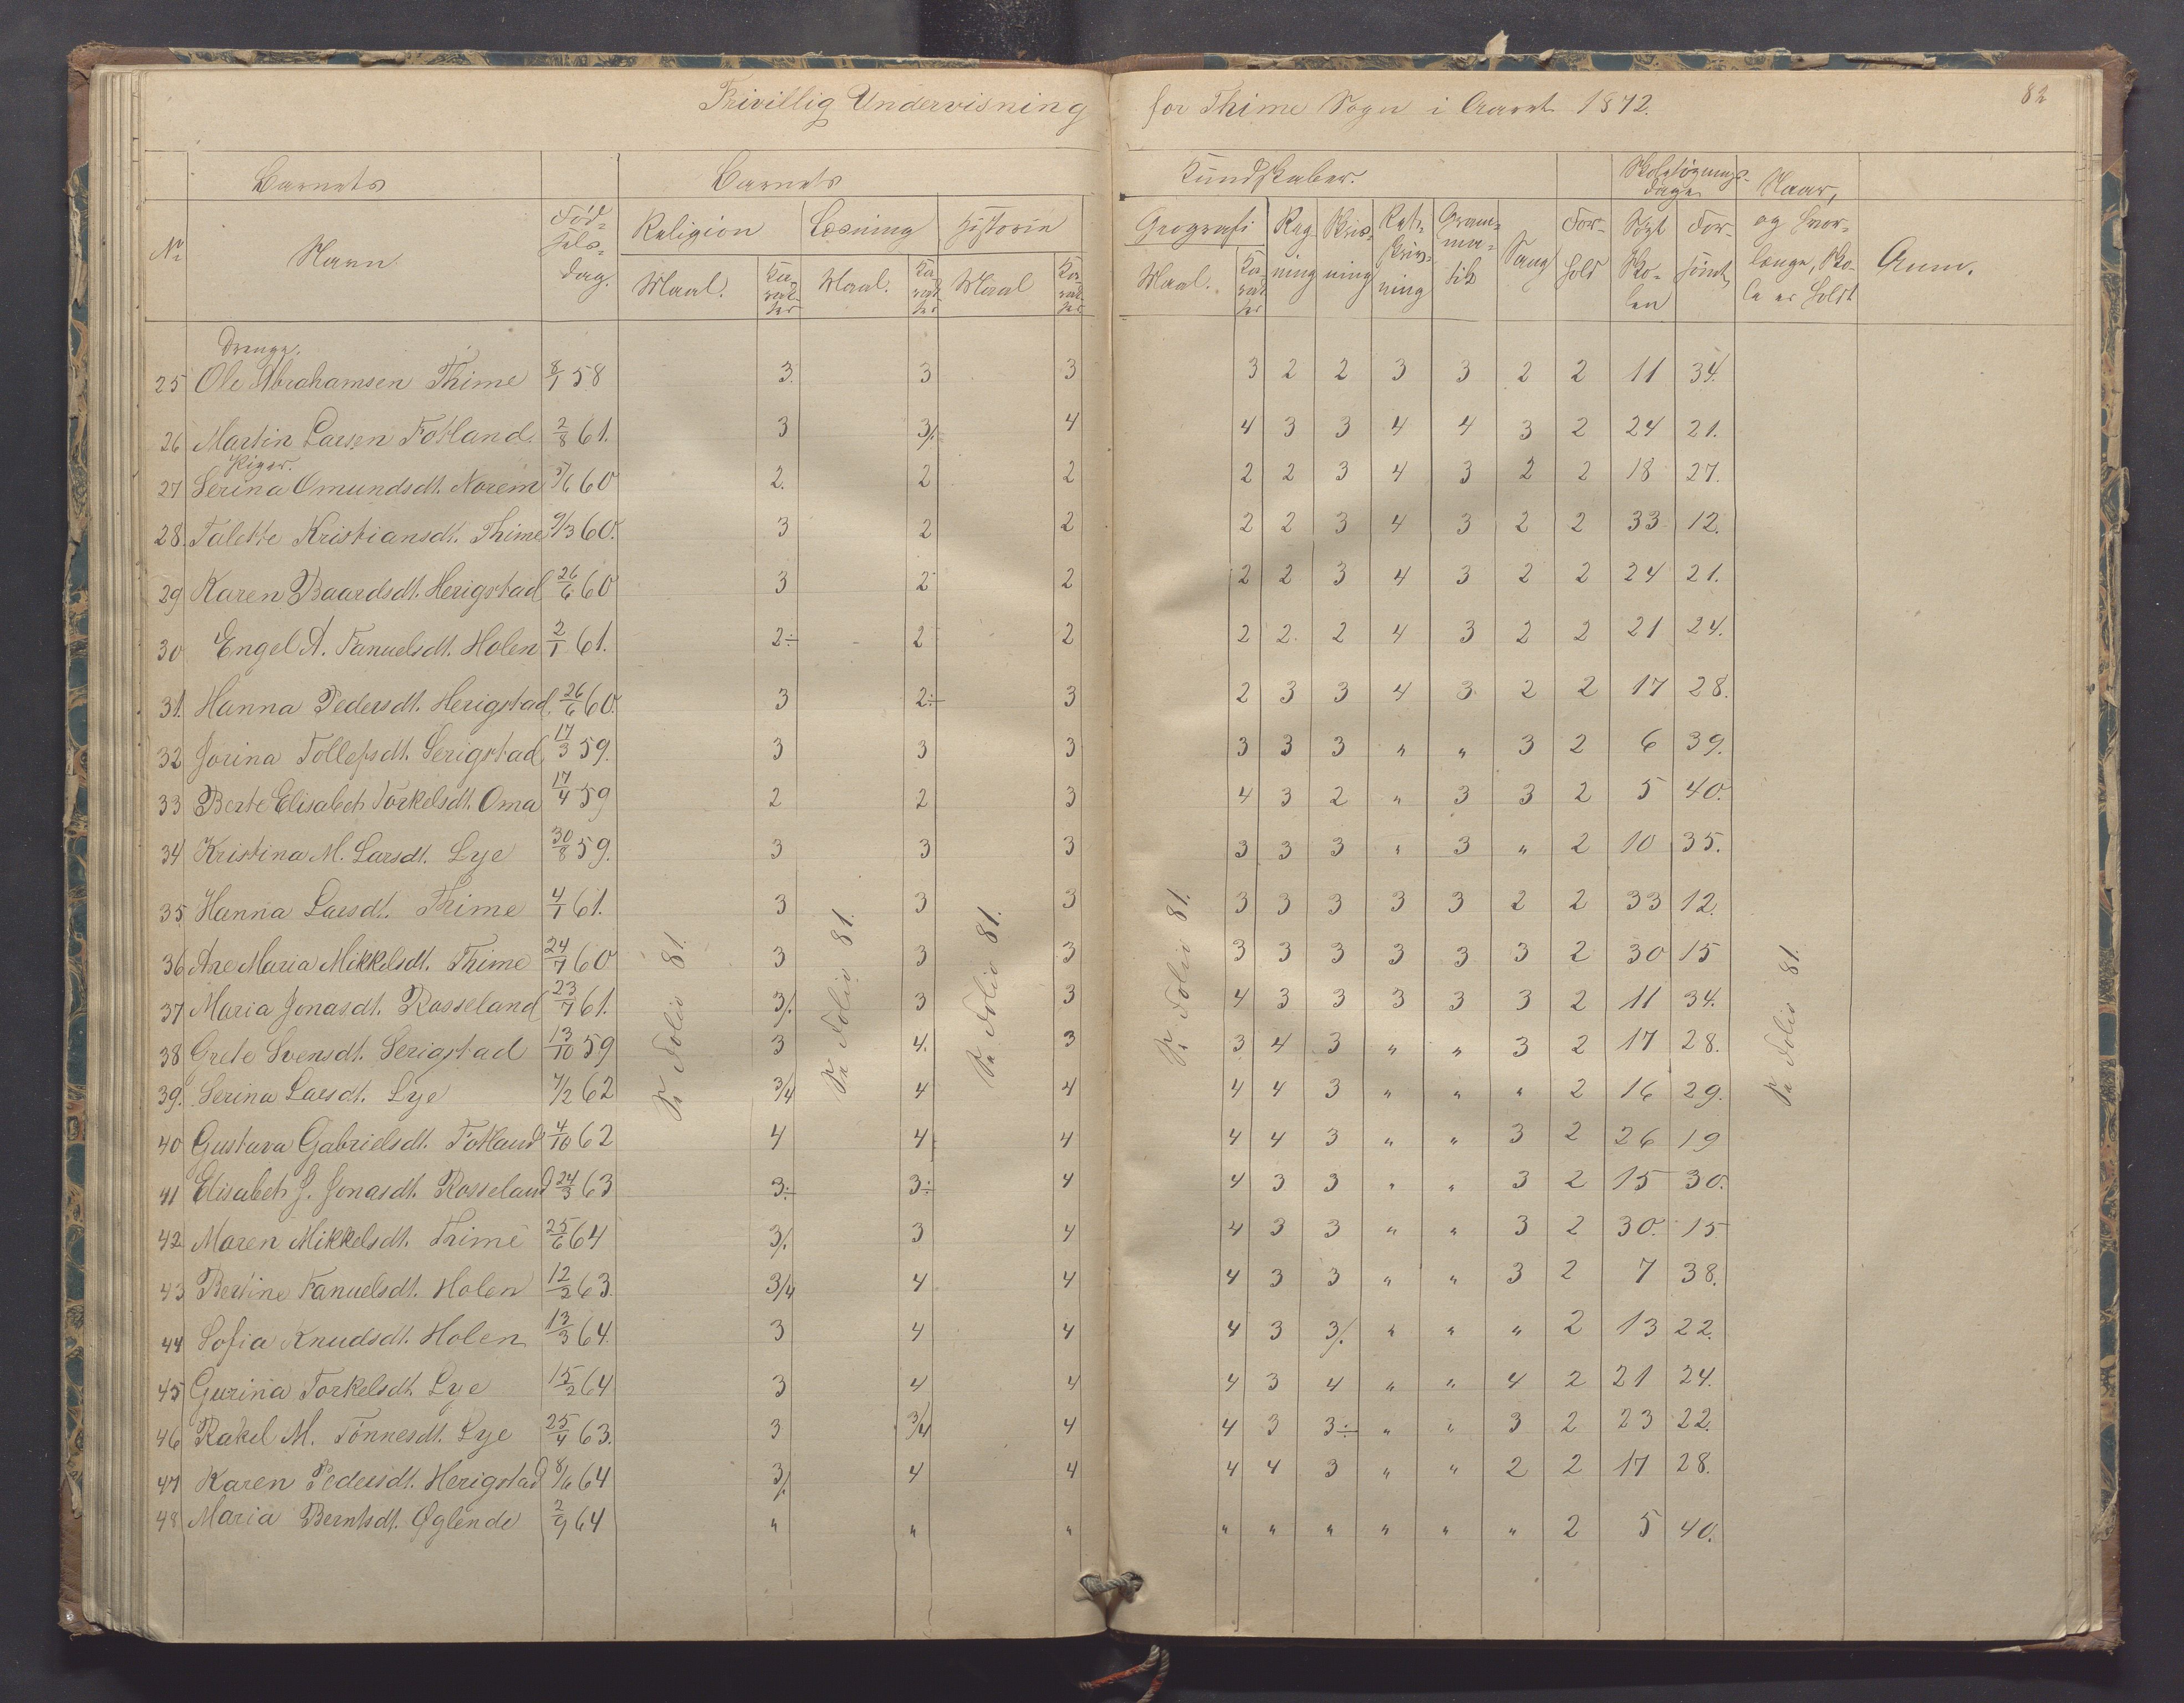 Frivillig Undervisning for Thime Sogn i Aaret 1872.
82
Barnets Barnets Kundskaber. Skolesøgnings-dage Naar,
Nr Navn Fød-sels-dag. Religion Læsning Historie Geografi Reg-ning Skriv-ning Ret-skriv-ning Gram-ma-tik Sang For-hold Søgt Sko-len For-sømt og hvor-længe, Sko-le er holdt Anm.
Maal. Ka-rak-ter Maal. Ka-rak-ter Maal Ka-rak-ter Maal. Ka-rak-ter
Drenge.
25 Ole Abrahamsen Thime 8/1 58 3. 3 3 3 2 2 3 3 2 2 11 34.
26 Martin Larsen Fotland. 2/8 61. 3 3/. 4 4 3 3 4 4 3 2 24 21.
Piger.
27 Serina Omundsdt. Norem 5/6 60 2. 2 2 2 2 3 4 3 2 2 18 27.
28. Talette Kristiansdt. Thime 9/3 60. 3 2 2 2 2 3 4 3 2 2 33 12.
29 Karen Baardsdt. Herigstad 26/6 60 3 2 2 2 2 3 4 3 2 2 24 21.
30 Engel A. Fanuelsdt. Holen 2/1 61. 2÷ 2 2 2 2 2 4 3 2 2 21 24.
31. Hanna Pedersdt. Herigstad. 26/6 60. 3 2÷ 3 2 3 3 4 3 2 2 17 28.
32 Jorina Tollefsdt. Serigstad 17/3 59. 3 3 3 3 3 3 " " 3 2 6 39.
33 Berte Elisabeth Torkelsdt. Oma 17/4 59 2 2 3 4 3 2 " 3 3 2 5 40.
34 Kristina M. Larsdt. Lye 30/8 59. 3 3 3 3 3 3 " 3 " 2 10 35.
35 Hanna Larsdt. Thime 4/1 61. 3 3 3 3 3 3 3 3 2 2 33 12.
36 Ane Maria Mikkelsdt. Thime 24/7 60 3 3 3 3 3 3 3 3 3 2 30 15
37 Maria Jonasdt. Rosseland 23/7 61. 3/. 3 3 4 3 3 3 3 3 2 11 34.
38 Grete Svensdt. Serigstad 13/10 59 3 4. 3 3 4 3 " " 3 2 17 28.
39. Serina Larsdt. Lye 7/2 62 3/4 4 4 4 4 3 " " " 2 16 29.
40 Gustava Gabrielsdt. Fotland 4/10 62 4 4 4 4 4 3 " " 3 2 26 19
41 Elisabeth J. Jonasdt. Rosseland 24/3 63 3÷ 3÷ 4 4 3 3 " " 3 2 15 30.
42 Maren Mikkelsdt. Thime 25/6 64 3/. 3 4 4 3 3 " " 3 2 30. 15
43 Bertine Fanuelsdt. Holen 12/2 63. 3/4 4 4 4 3 3 " " 3 2 7 38.
44 Sofia Knudsdt. Holen 13/3 64. 3 4 4 4 3 3/. " " " 2 13 22.
45 Gurina Torkelsdt. Lye 15/2 64 3 4 4 4 3 4 " " 4 2 21 24.
46 Rakel M. Tönnesdt. Lye 25/4 63. 3 3/4 4 4 3 3÷ " " 3 2 23 22.
47 Karen Pedersdt. Herigstad 8/6 64 3/. 4 4 4 4 3 " " 2 2 17 28.
48 Maria Berntsdt. Øglende 2/9 64 " " " " " " " " " 2 5 40.
Folio 81.
Folio 81.
Folio 81.
Folio 81.
Folio 81.